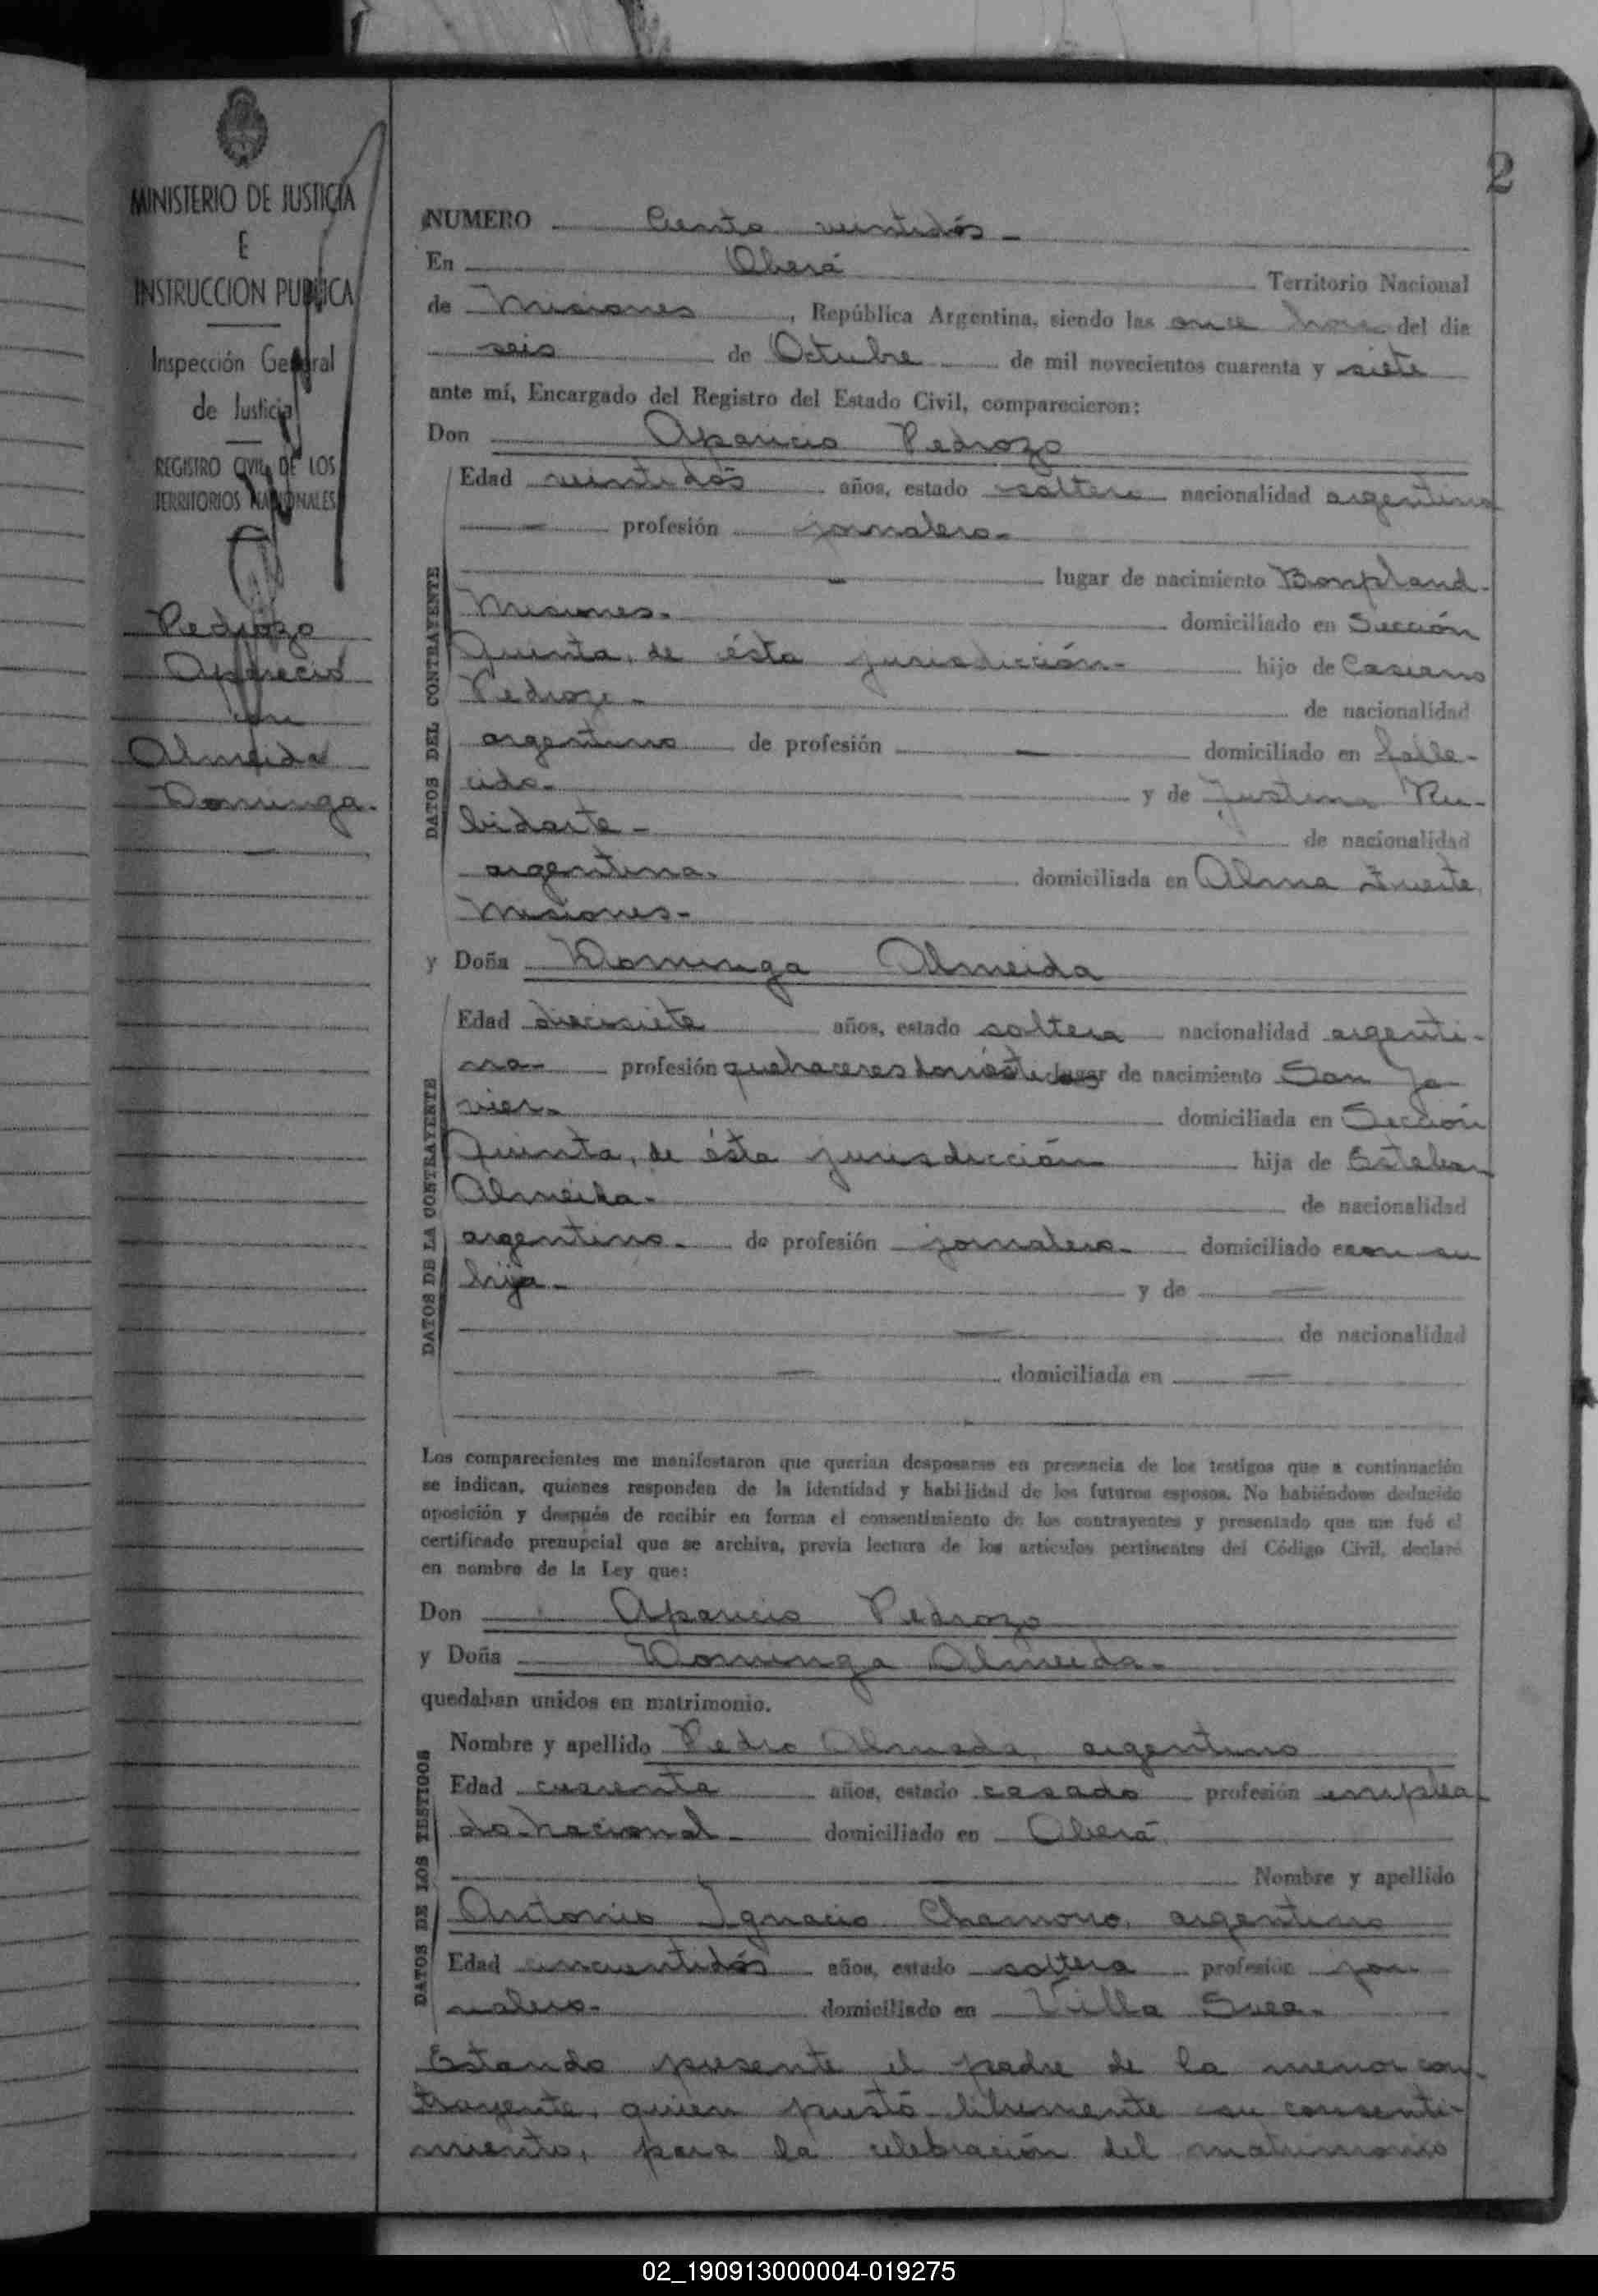 MINISTERIO DE JUSTICIA
E
INSTRUCCION PUBLICA
Inspección General
de Justicia
REGISTRO CIVIL DE LOS
TERRITORIOS NACIONALES
Pedrozo
Aparecio
con
Almeida
Dominga.
2
NUMERO Ciento veintidós
En Oberá Territorio Nacional
de Misiones, República Argentina, siendo las once horas del dia
seis de Octubre de mil novecientos cuarenta y siete
ante mí, Encargado del Registro del Estado Civil, comparecieron:
Don Aparicio Pedrozo
DATOS DEL CONTRAYENTE
Edad veintidós años, estado soltero nacionalidad argentina
profesión jornalero-
lugar de nacimiento Bonpland-
Misiones- domiciliado en Sección
Quinta, de ésta jurisdicción- hijo de Casiano
Pedrozo- de nacionalidad
argentino de profesión — domiciliado en falle-
cido- y de Justina Ru-
bidarte- de nacionalidad
argentina- domiciliada en Alma Fuerte,
Misiones-
y Doña Dominga Almeida
DATOS DE LA CONTRAYENTE
Edad diecisiete años, estado soltera nacionalidad argenti-
na- profesión quehaceres domésticos lugar de nacimiento San Ja
vier- domiciliada en Sección
Quinta, de ésta jurisdicción hija de Esteban
Almeida- de nacionalidad
argentino- de profesión jornalero- domiciliado con su
hija- y de —
— de nacionalidad
— domiciliada en —
Los comparecientes me manifestaron que querían desposarse en presencia de los testigos que a continuación
se indican, quienes responden de la identidad y habilidad de los futuros esposos. No habiéndose deducido
oposición y después de recibir en forma el consentimiento de los contrayentes y presentado que me fué el
certificado prenupcial que se archiva, previa lectura de los artículos pertinentes del Código Civil, declaré
en nombre de la Ley que:
Don Aparicio Pedrozo
y Doña Dominga Almeida-
quedaban unidos en matrimonio.
DATOS DE LOS TESTIGOS
Nombre y apellido Pedro Almada, argentino
Edad cuarenta años, estado casado profesión emplea-
do nacional- domiciliado en Oberá
Nombre y apellido
Antonio Ignacio Chamorro, argentino
Edad cincuentidós años, estado soltero profesión jor
nalero- domiciliado en Villa Svea-
Estando presente el padre de la menor con-
trayente, quien prestó libremente su consenti-
miento, para la celebración del matrimonio
02_190913000004-019275